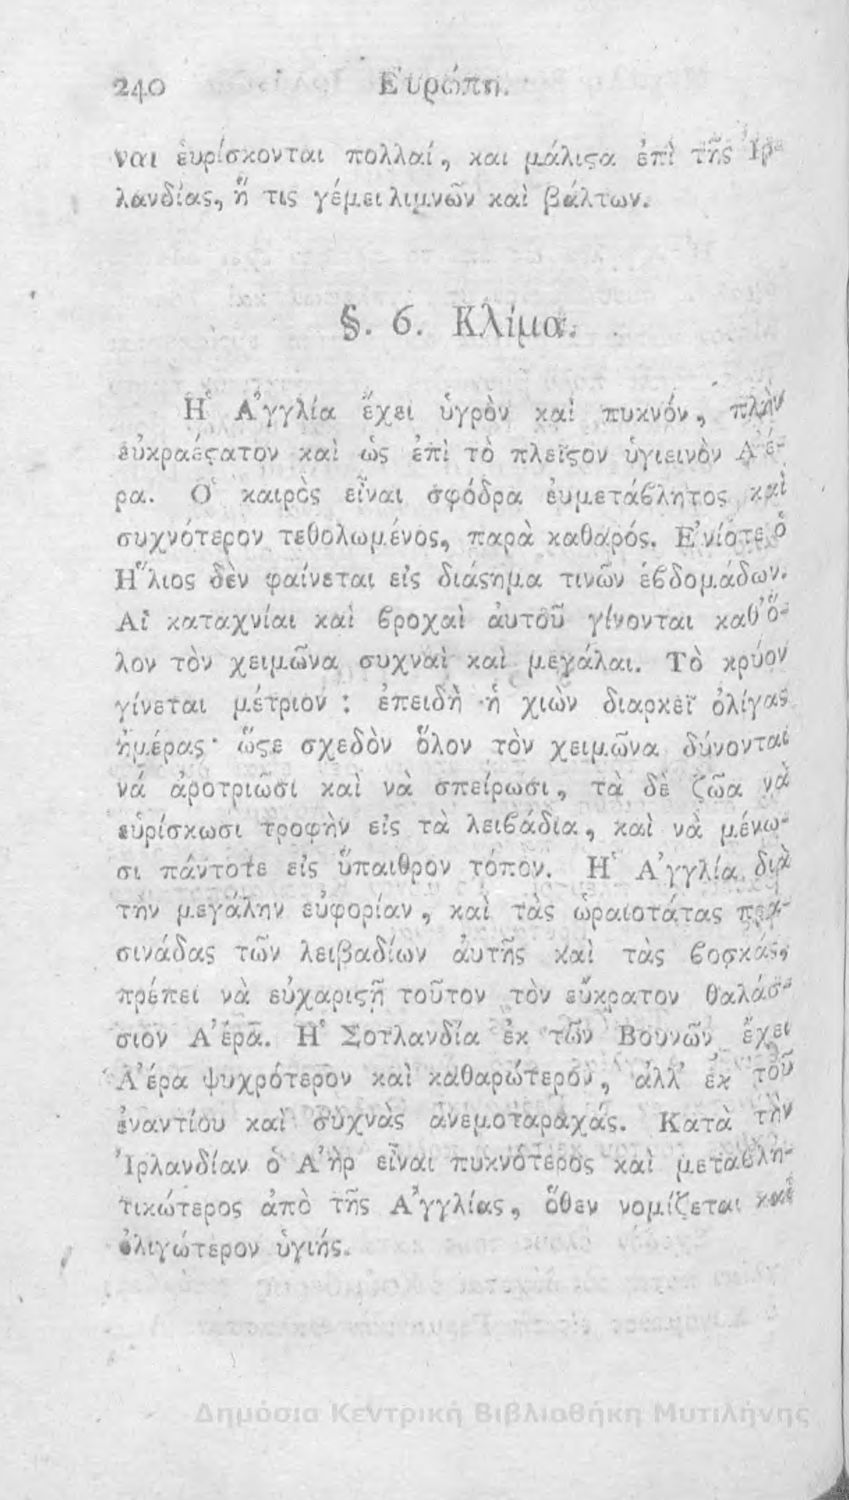 240 Εὐρώπη.
ναι ἑυρίσκονται πολλαί, και μάλιςα ἐπὶ τῆς Ἰρ-
λανδίας, ἥ τις γέμει λιμνῶν καὶ βάλτων.
§. 6. Κλίμα.
Ἡ Ἀγγλία ἔχει ὑγρὸν καὶ πυκνόν, πλὴν
ἐυκραέςατον καὶ ὡς ἐπὶ τὸ πλεῖςον ὑγιεινὸν Ἀέ-
ρα. Ὁ καιρὸς εἶναι σφόδρα ἐυμετάβλητος καὶ
συχνότερον τεθολωμένος, παρὰ καθαρός. Ἐνίοτε ὁ
Ἥλιος δὲν φαίνεται εἰς διάςημα τινῶν ἑβδομάδων.
Αἱ καταχνίαι καὶ βροχαὶ ἀυτοῦ γίνονται καθ᾽ ὅ-
λον τὸν χειμῶνα συχναὶ καὶ μεγάλαι. Τὸ κρύον
γίνεται μέτριον : ἐπειδὴ ἡ χιὼν διαρκεῖ ὀλίγας
ἡμέρας· ὥςε σχεδὸν ὅλον τὸν χειμῶνα δύνονται
νὰ ἀροτριῶσι καὶ νὰ σπείρωσι, τὰ δὲ ζῶα νὰ
ἑυρίσκωσι τροφὴν εἰς τὰ λειβάδια, καὶ νὰ μένω-
σι πάντοτε εἰς ὕπαιθρον τόπον. Ἡ Ἀγγλία διὰ
τὴν μεγάλην ἐυφορίαν, καὶ τὰς ὡραιοτάτας πρα-
σινάδας τῶν λειβαδίων ἀυτῆς καὶ τὰς βοσκάς,
πρέπει νὰ εὐχαριςῇ τοῦτον τὸν εὔκρατον θαλάσ-
σιον Ἀέρα. Ἡ Σοτλανδία ἐκ τῶν Βουνῶν ἔχει
Ἀέρα ψυχρότερον καὶ καθαρώτερον, ἀλλ᾽ ἐκ τοῦ
ἐναντίου καὶ συχνὰς ἀνεμοταραχάς. Κατὰ τὴν
Ἰρλανδίαν ὁ Ἀὴρ εἶναι πυκνότερος καὶ μεταβλη-
τικώτερος ἀπὸ τῆς Ἀγγλίας, ὅθεν νομίζεται καὶ
ὀλιγώτερον ὑγιής.
Δημόσια Κεντρική Βιβλιοθήκη Μυτιλήνης